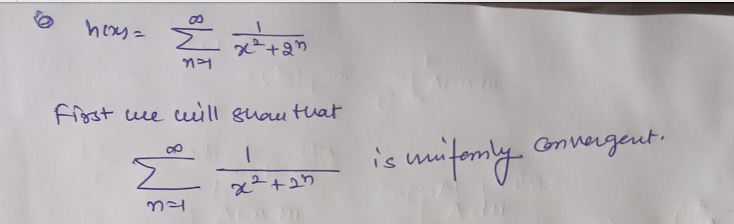 ⑥ h(x) = ∑_{n=1}^{∞} 1/(x² + 2ⁿ)
First we will show that
∑_{n=1}^{∞} 1/(x² + 2ⁿ) is uniformly convergent.